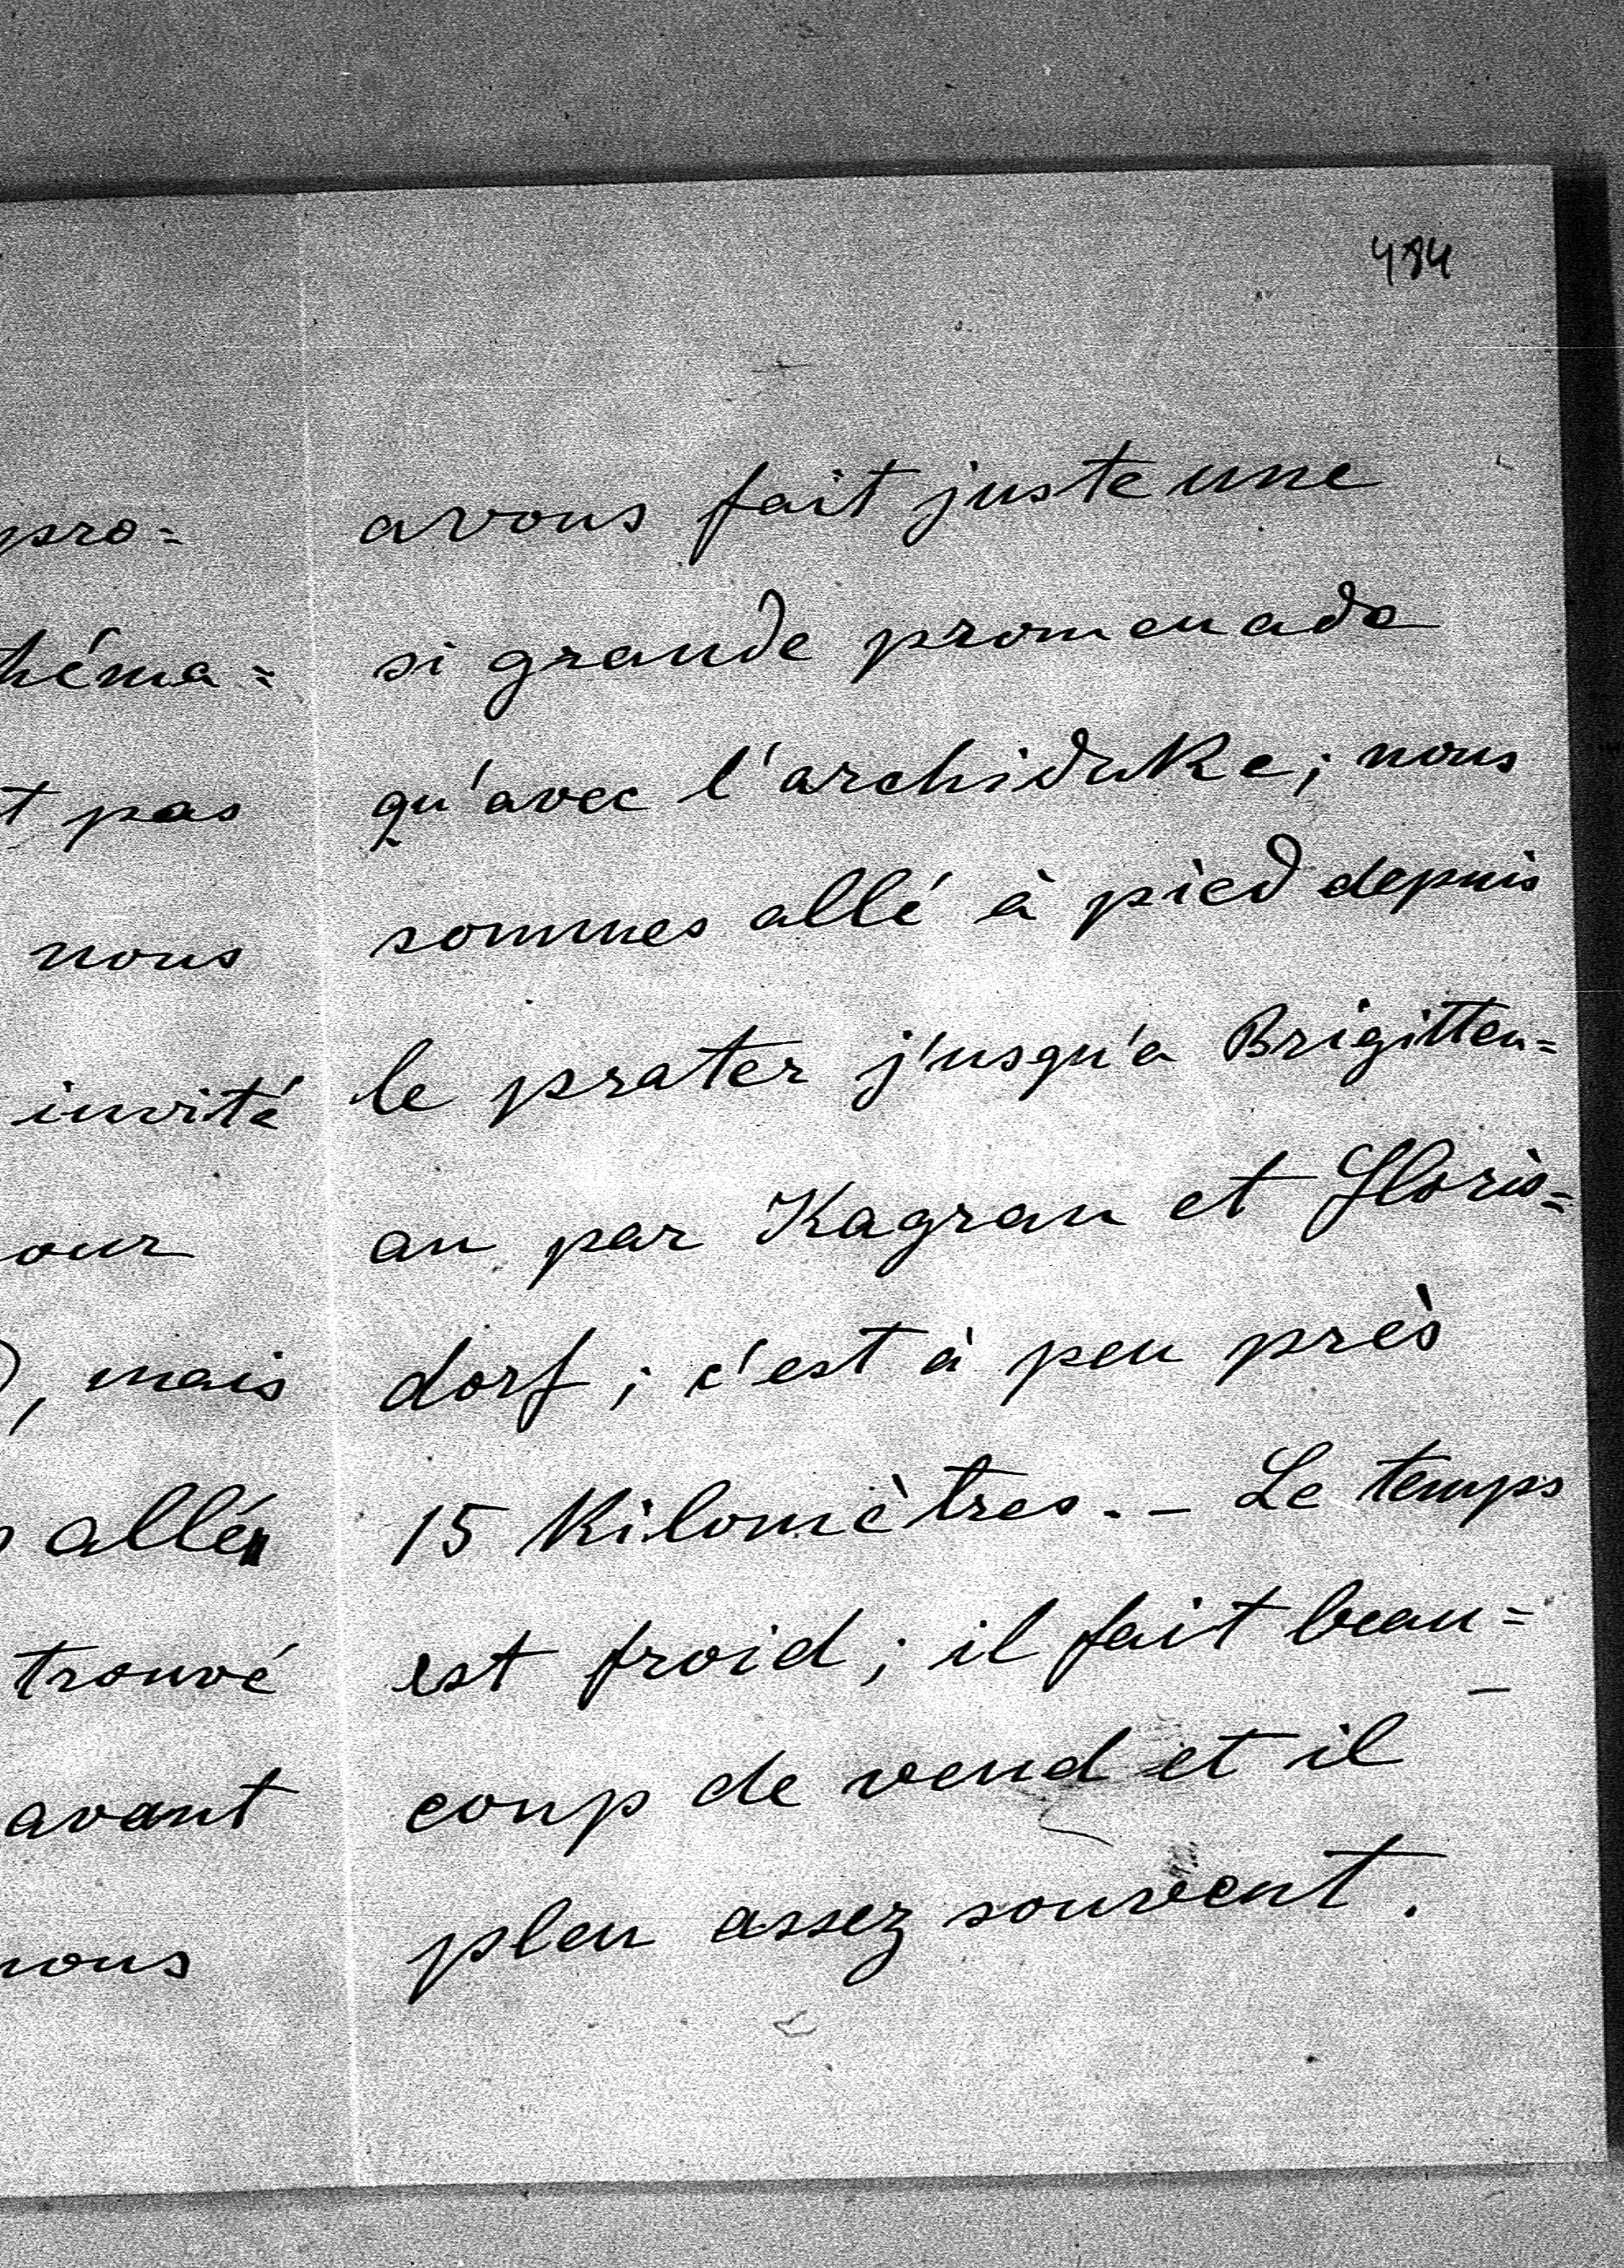 484
pro=
héma=
t pas
nous
invité
our
, mais
allé
trouvé
avant
nous
avons fait juste une
si grande promenade
qu'avec l'archiduke; nous
sommes allé à pied depuis
le prater j'usqu'a Brigitten=
au par Kagran et Floris=
dorf; c'est à peu près
15 Kilomètres. - Le temps
est froid; il fait beau=
coup de vend et il
pleu assez souvent.